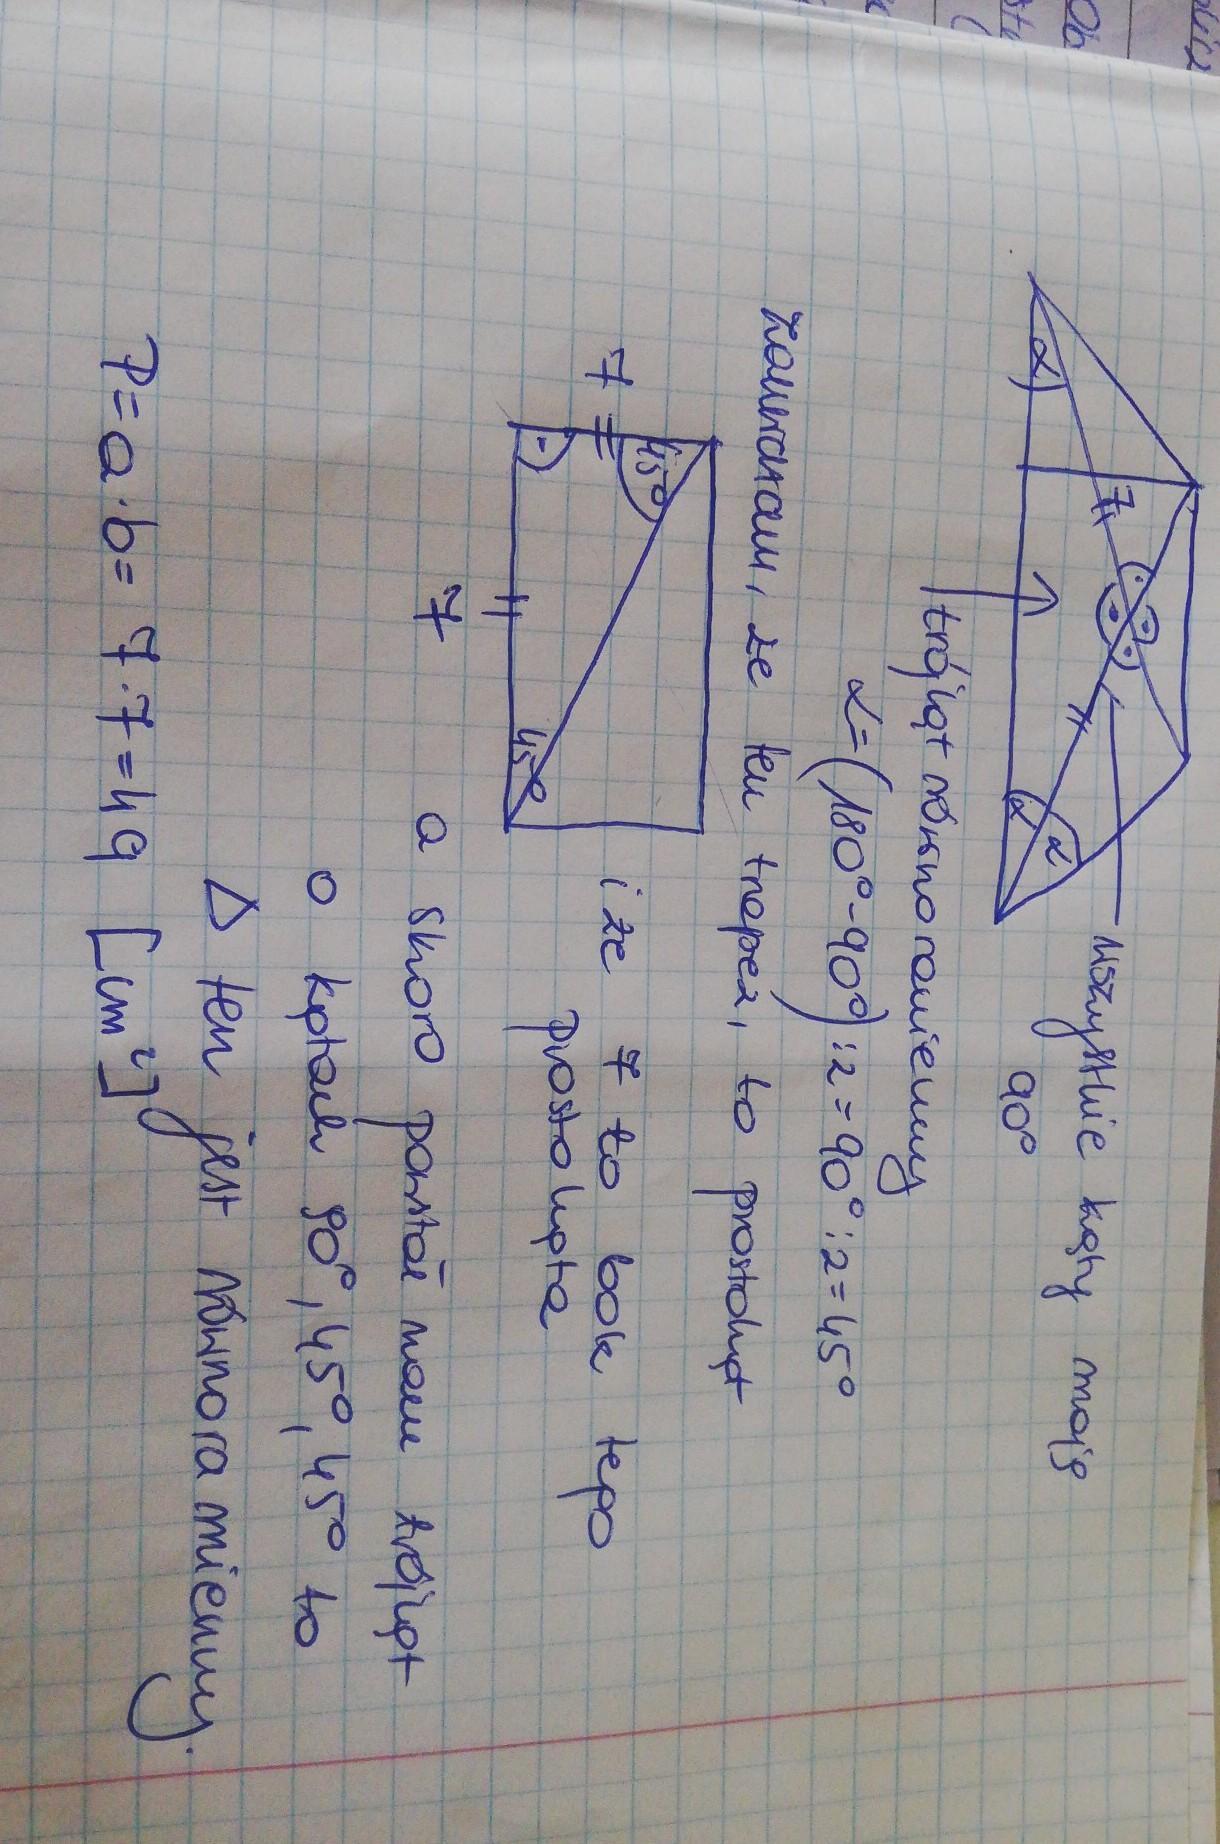 wszystkie kąty mają
90°
α
7
α
α
trójkąt równoramienny
α=(180°-90°):2=90°:2=45°
Zauważam, że ten trapez, to prostokąt
45°
7
45°
7
i że 7 to bok tego
prostokąta
a skoro powstał nam trójkąt
o kątach 90°, 45°, 45° to
Δ ten jest równoramienny.
P=a·b=7·7=49 [cm²]